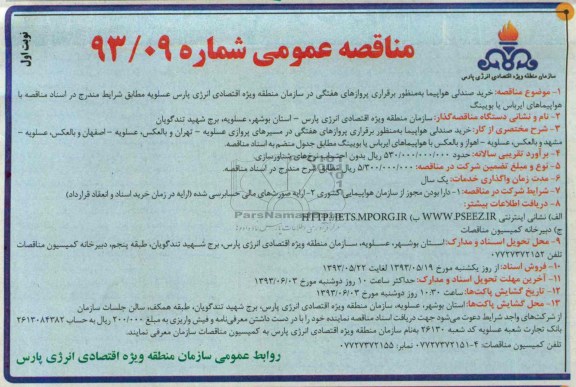 مناقصه عمومی شماره ۹۳/۰۹
نوبت اول
سازمان منطقه ویژه اقتصادی انرژی پارس
۱- موضوع مناقصه: خرید صندلی هواپیما به‌منظور برقراری پروازهای هفتگی در سازمان منطقه ویژه اقتصادی انرژی پارس عسلویه مطابق شرایط مندرج در اسناد مناقصه با
هواپیماهای ایرباس یا بویینگ
۲- نام و نشانی دستگاه مناقصه‌گذار: سازمان منطقه ویژه اقتصادی انرژی پارس – استان بوشهر، عسلویه، برج شهید تندگویان
۳- شرح مختصری از کار: خرید صندلی هواپیما به‌منظور برقراری پروازهای هفتگی در مسیرهای پروازی عسلویه - تهران و بالعکس، عسلویه - اصفهان و بالعکس، عسلویه -
مشهد و بالعکس، عسلویه - اهواز و بالعکس با هواپیماهای ایرباس یا بویینگ مطابق جدول منضم به اسناد مناقصه.
۴- برآورد تقریبی سالانه: حدود ۵۳۰/۰۰۰/۰۰۰/۰۰۰ ریال بدون احتساب نرخ‌های شناورسازی
۵- نوع و مبلغ تضمین شرکت در مناقصه: ۵/۳۰۰/۰۰۰/۰۰۰ ریال مطابق شرح مندرج در اسناد مناقصه
۶- مدت زمان واگذاری خدمات: یک سال
۷- شرایط شرکت در مناقصه: ۱- دارا بودن مجوز از سازمان هواپیمایی کشوری ۲- ارایه صورت‌های مالی حسابرسی شده (ارایه در زمان خرید اسناد و انعقاد قرارداد)
۸- دریافت اطلاعات بیشتر:
الف) نشانی اینترنتی WWW.PSEEZ.IR ب) HTTP://IETS.MPORG.IR
ج) دبیرخانه کمیسیون مناقصات
۹- محل تحویل اسناد و مدارک: استان بوشهر، عسلویه، سازمان منطقه ویژه اقتصادی انرژی پارس، برج شهید تندگویان، طبقه پنجم، دبیرخانه کمیسیون مناقصات
تلفن ۰۷۷۲۷۳۷۲۱۵۲
۱۰- فروش اسناد: از روز یکشنبه مورخ ۱۳۹۳/۰۵/۱۹ لغایت ۱۳۹۳/۰۵/۲۲
۱۱- آخرین مهلت تحویل اسناد و مدارک: حداکثر ساعت ۱۰ روز دوشنبه مورخ ۱۳۹۳/۰۶/۰۳
۱۲- تاریخ گشایش پاکت‌ها: ساعت ۱۰:۳۰ روز دوشنبه مورخ ۱۳۹۳/۰۶/۰۳
۱۳- محل گشایش پاکت‌ها: استان بوشهر، عسلویه، سازمان منطقه ویژه اقتصادی انرژی پارس، برج شهید تندگویان، طبقه همکف، سالن جلسات سازمان
از شرکت‌های واجد شرایط دعوت می‌شود جهت دریافت اسناد مناقصه نماینده خود را با در دست داشتن معرفی‌نامه و فیش واریزی به مبلغ ۲۰۰/۰۰۰ ریال به حساب ۲۶۱۳۰۸۴۳۸۲
بانک تجارت شعبه عسلویه کد شعبه ۲۶۱۳۰ به‌نام سازمان منطقه ویژه اقتصادی انرژی پارس به کمیسیون مناقصات سازمان معرفی نمایند.
تلفن کمیسیون مناقصات: ۴-۰۷۷۲۷۳۷۲۱۵۱ نمابر: ۰۷۷۲۷۳۷۲۱۵۵
روابط عمومی سازمان منطقه ویژه اقتصادی انرژی پارس